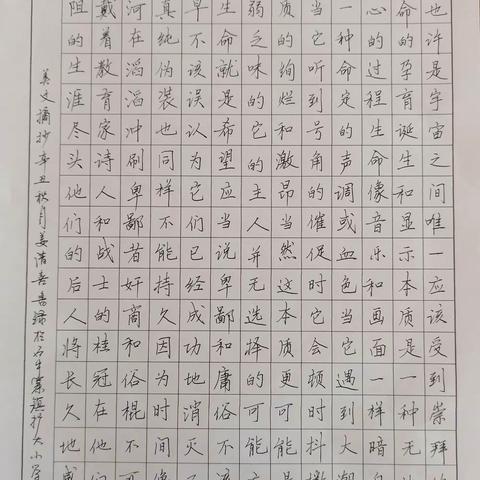 也许是宇宙之间唯一应该受到崇拜
命的孕育诞生和显示本质是一种无
心的过程生命像音乐和画面一样暗
一种命定的声调或血色当它遇到大潮
当它听到号角的催促时它会顿时抖擞
质的绚烂和激昂当然这本质更可能是
弱之味的它的主人并无选择的可能
生命就是希望应当说卑鄙和庸俗不
早不该误认为它们已经成功地消灭了
真纯伪装也同样不能持久因为时间
河在滔滔冲刷卑鄙者奸商和俗棍不可
戴着教育家诗人和战士的桂冠在他们
阻的生涯尽头他们的后人将长久地感
美文摘抄辛丑秋月姜浩喜书